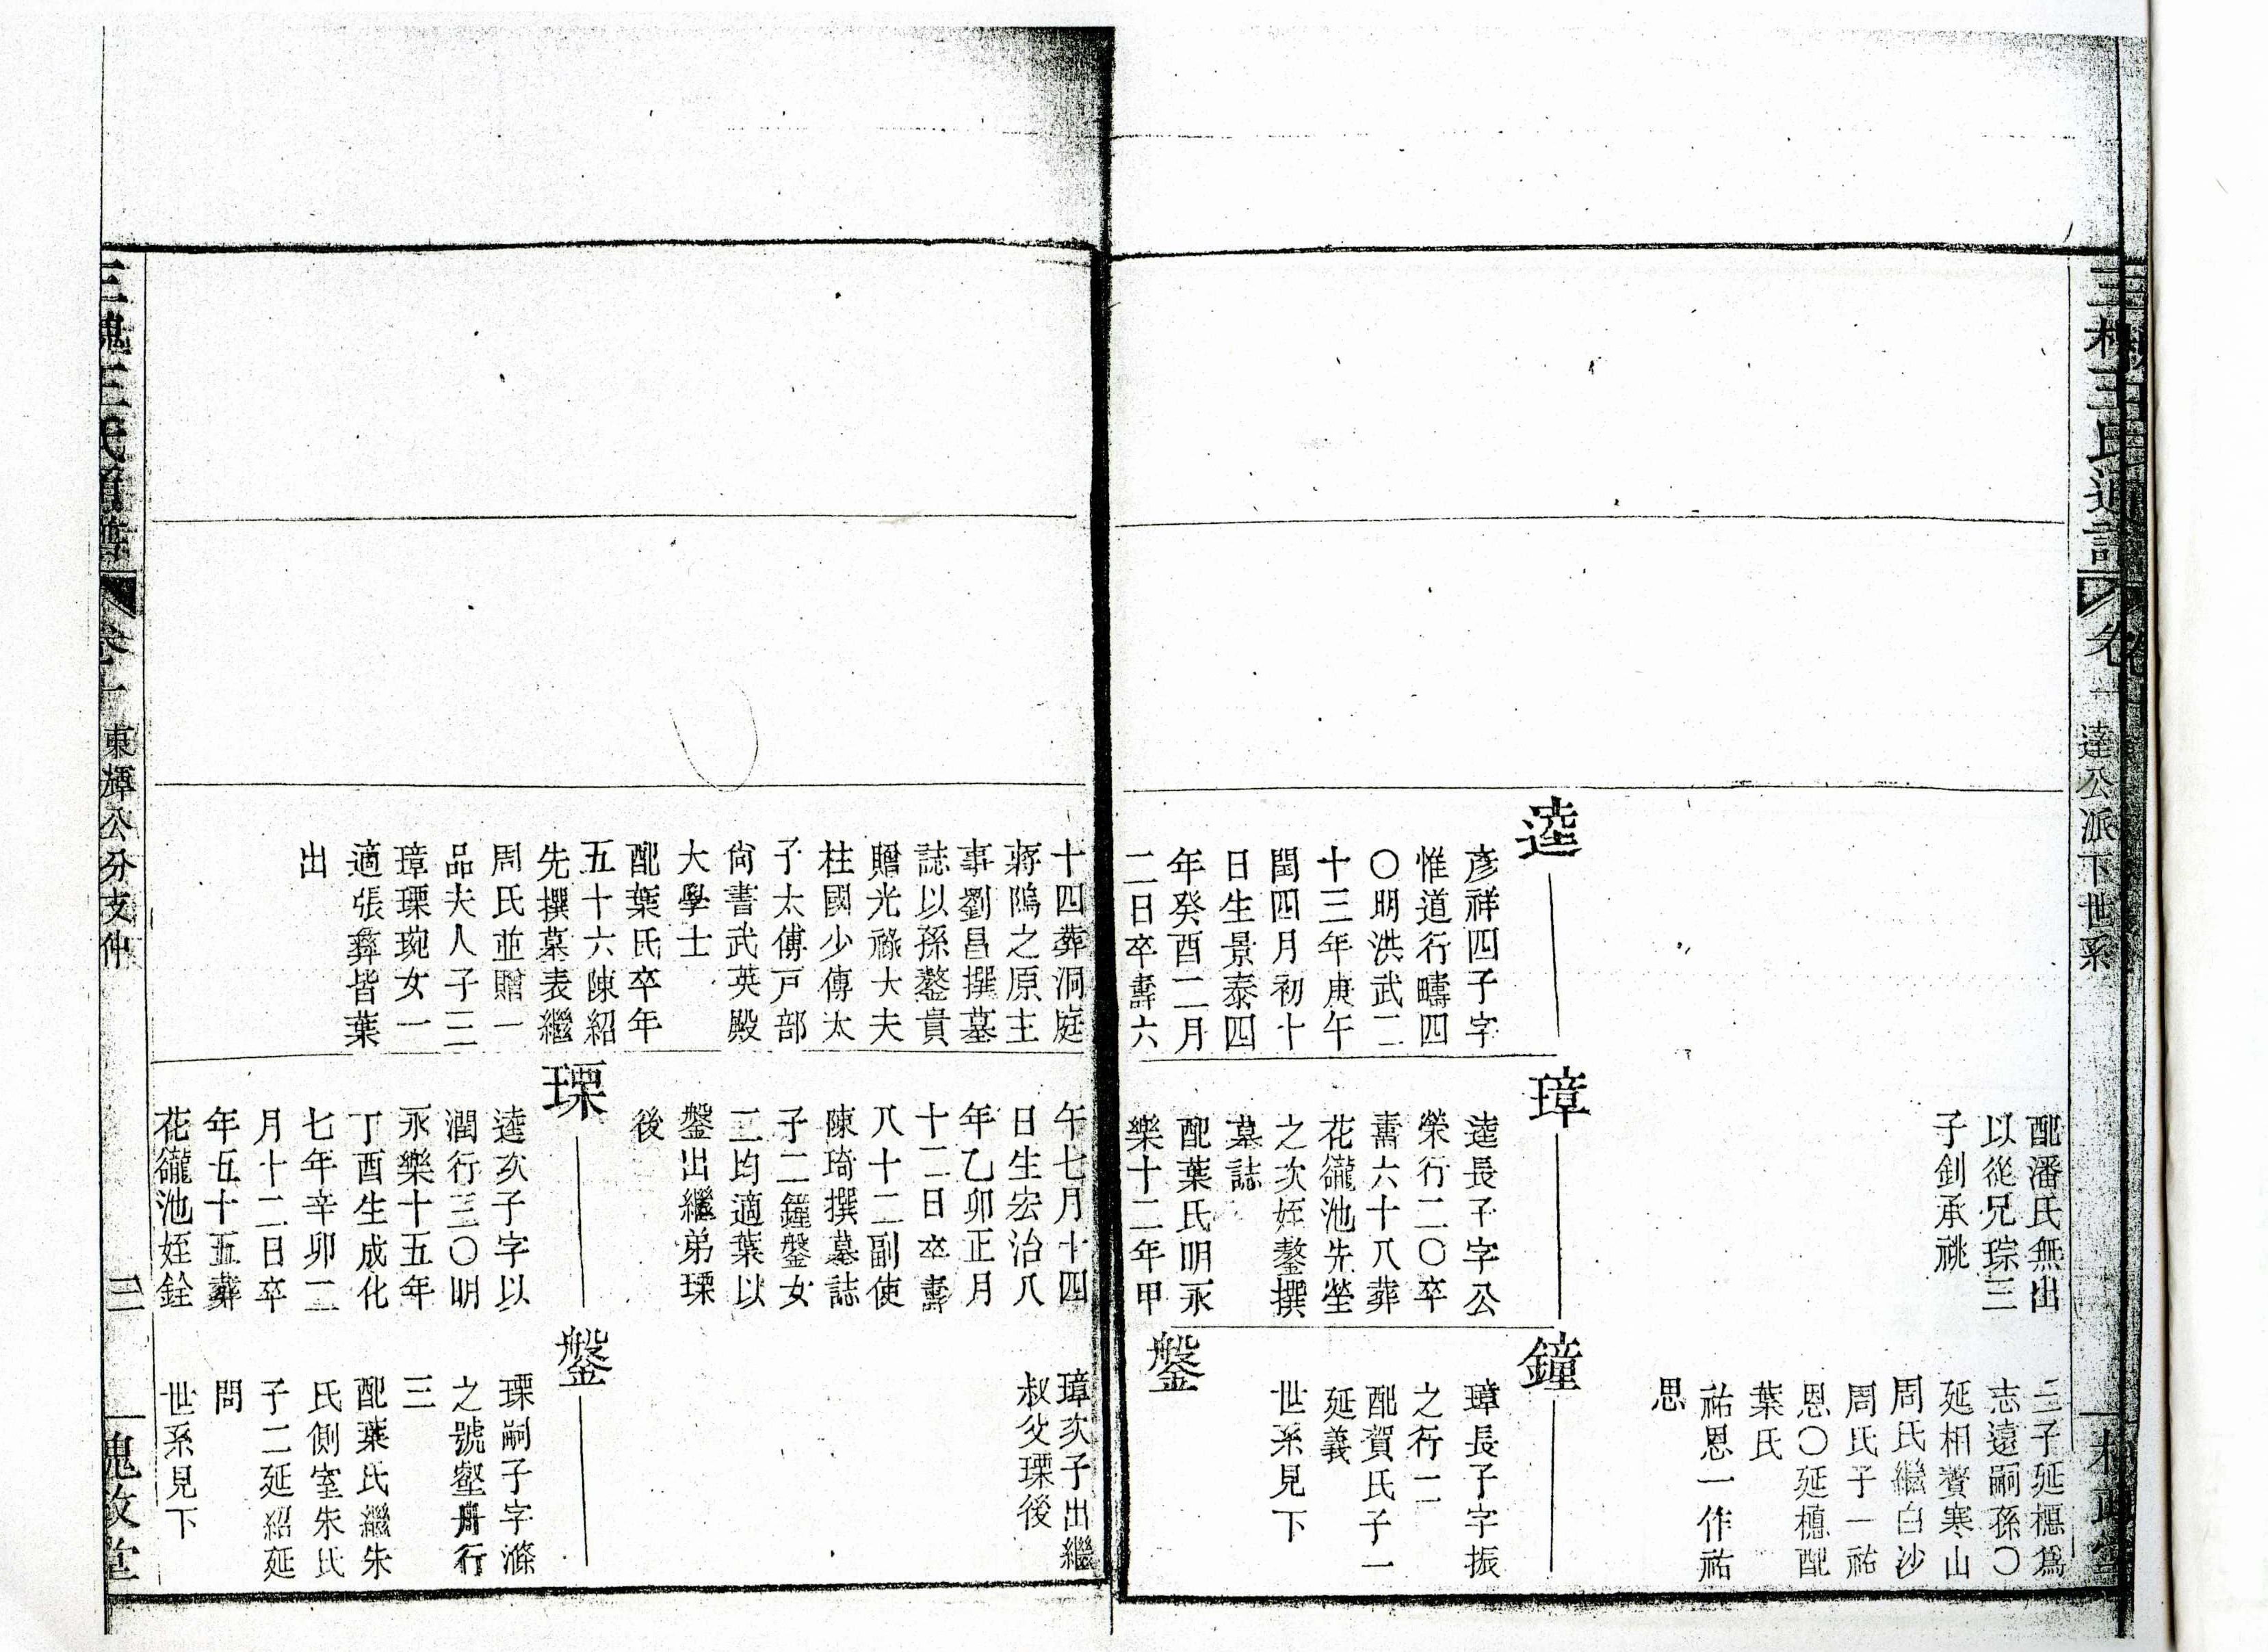 三槐王氏通譜
卷一
達公派下世系
配潘氏無出
以從兄琮三
子釗承祧
三子延櫄爲
志遠嗣孫〇
延相贅寒山
周氏繼白沙
周氏子一祐
恩〇延櫄配
葉氏
祐恩一作祐
思
逵
彥祥四子字
惟道行疇四
〇明洪武二
十三年庚午
閏四月初十
日生景泰四
年癸酉二月
二日卒壽六
璋
逵長子字公
榮行二〇卒
壽六十八葬
花巃池先塋
之次姪鏊撰
墓誌
配葉氏明永
樂十二年甲
鐘
璋長子字振
之行二
配賀氏子一
延義
世系見下
鎜
十四葬洞庭
蔣隖之原主
事劉昌撰墓
誌以孫鏊貴
贈光祿大夫
柱國少傅太
子太傅戸部
尙書武英殿
大學士
配葉氏卒年
五十六陳紹
先撰墓表繼
周氏並贈一
品夫人子三
璋瑮琬女一
適張彝皆葉
出
午七月十四
日生宏治八
年乙卯正月
十二日卒壽
八十二副使
陳琦撰墓誌
子二鐘鎜女
二均適葉以
鎜出繼弟瑮
後
璋次子出繼
叔父瑮後
瑮
逵次子字以
潤行三〇明
永樂十五年
丁酉生成化
七年辛卯二
月十二日卒
年五十五葬
花巃池姪銓
鎜
瑮嗣子字滌
之號壑舟行
三
配葉氏繼朱
氏側室朱氏
子二延紹延
問
世系見下
三槐王氏通譜
卷一
東輝公分支仲
三
槐政堂